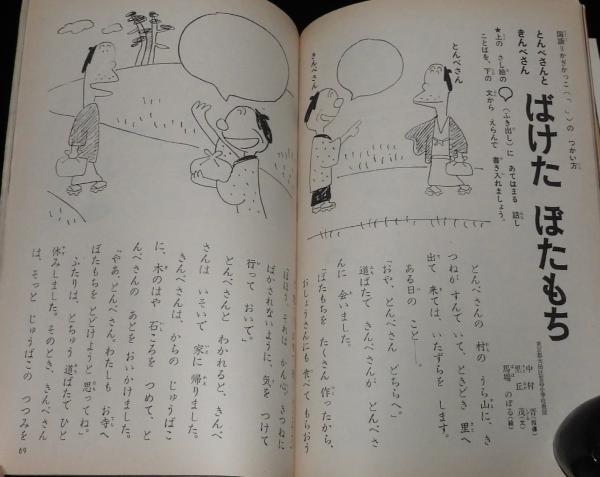 国語=かぎかっこ(「 」)の つかい方
とんべさんと
きんべさん
ばけた ぼたもち
★上の さし絵の (ふき出し)に あてはまる 話し
ことばを、下の 文から えらんで 書き入れましょう。
とんべさん
きんべさん
中村
里丘 茂(文)
馬場 のぼる(絵)
とんべさんの 村の うら山に、き
つねが すんで いて、ときどき 里へ
出て 来ては、いたずらを します。
ある日の こと―。
「おや、とんべさん どちらへ。」
道ばたで きんべさんが とんべさ
んに 会いました。
「ぼたもちを たくさん 作ったから、
おしょうさんにも 食べて もらおう
「ほほう、それは かん心。きつねに
ばかされないように、気を つけて
行って おいで。」
とんべさんと わかれると、きんべ
さんは いそいで 家に 帰りました。
きんべさんは、からの じゅうばこ
に、木のはや 石ころを つめて、と
んべさんの あとを おいかけました。
「やあ、とんべさん。わたしも お寺へ
ぼたもちを とどけようと 思ってね。」
ふたりは、とちゅう 道ばたで ひと
休みしました。そのとき、きんべさん
は、そっと じゅうばこの つつみを
69